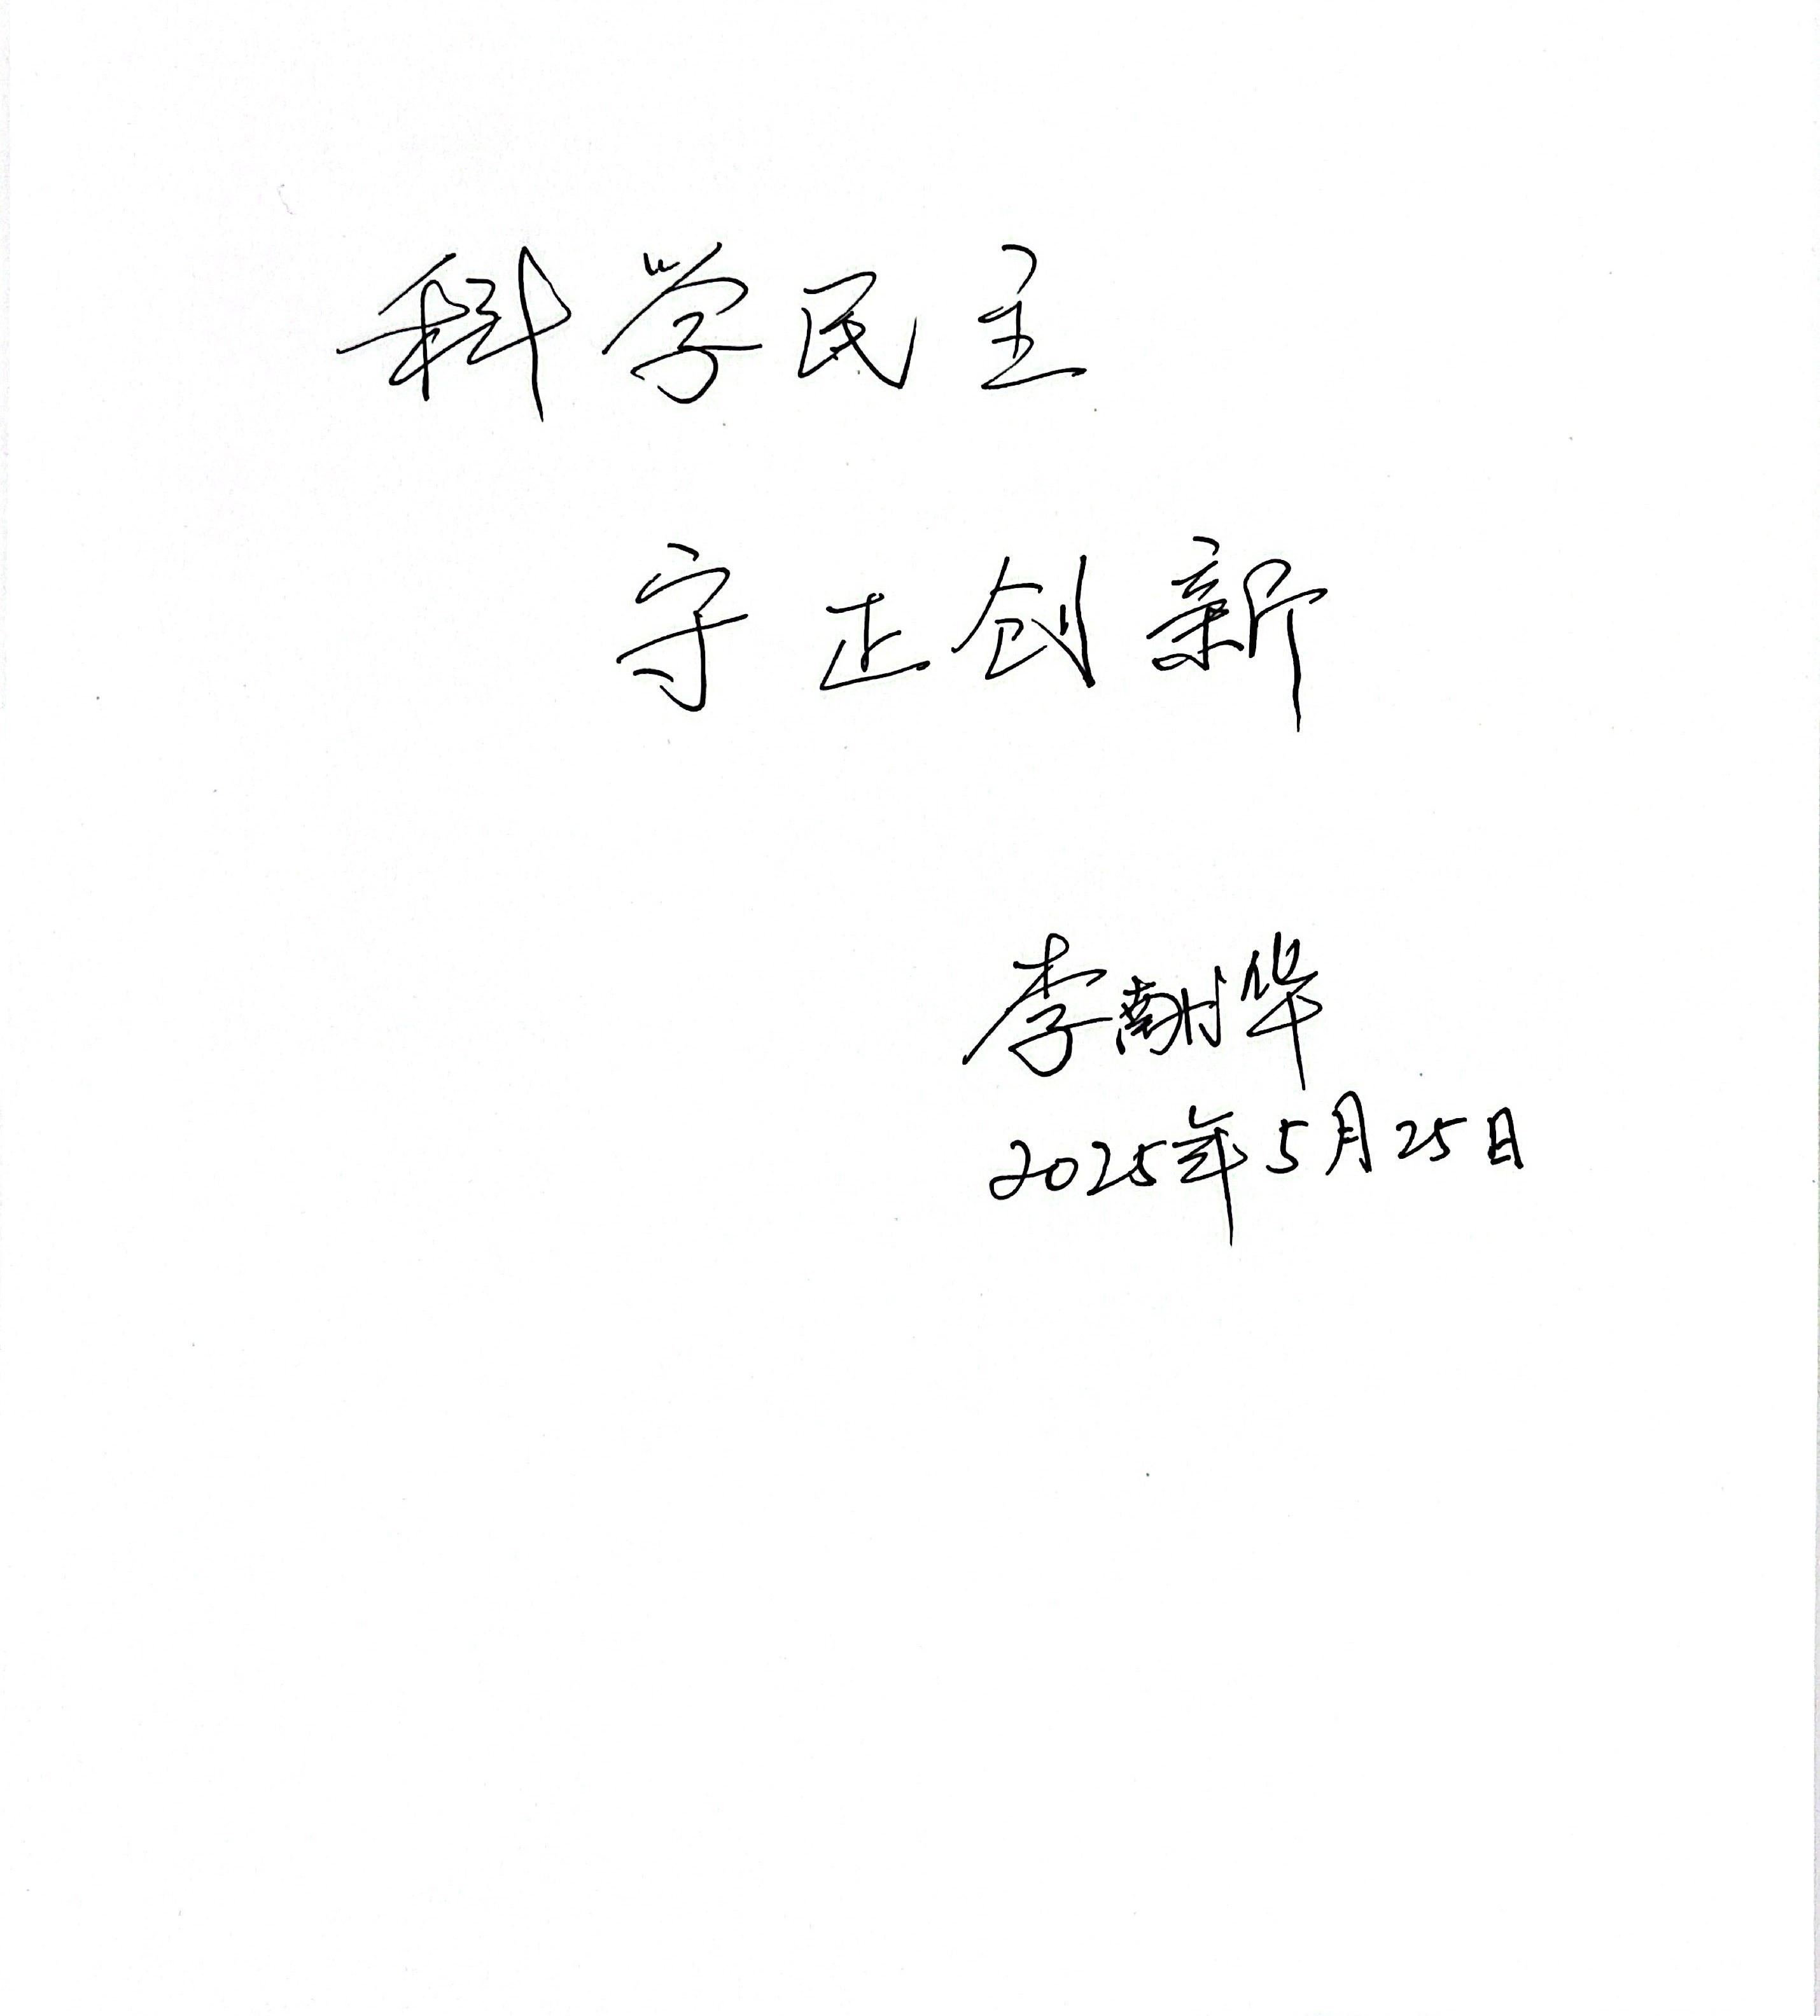 科学民主
守正创新
李华
2025年5月25日